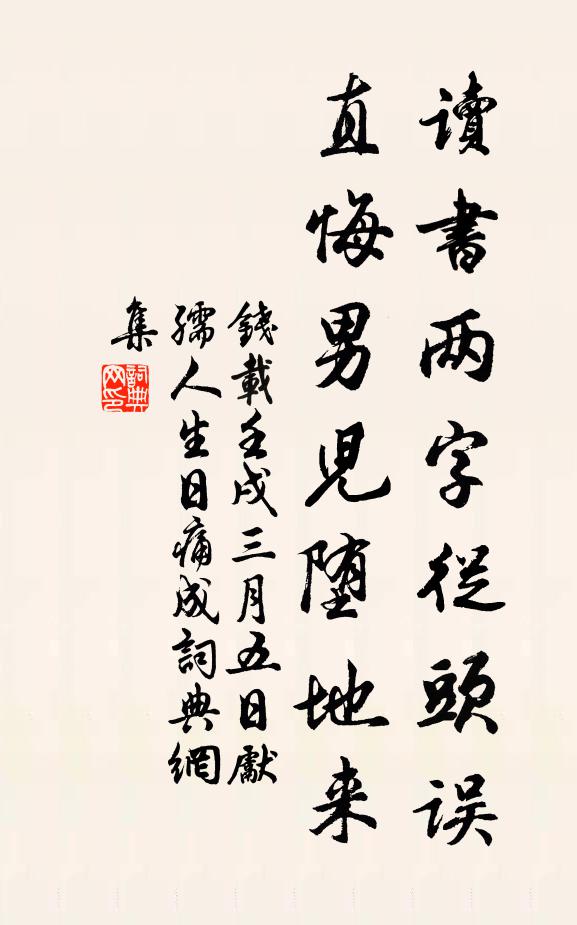 讀書两字從頭误
直悔男児堕地来
錢載壬戌三月五日獻
孺人生日痛成詞典網
集
詞典
网印